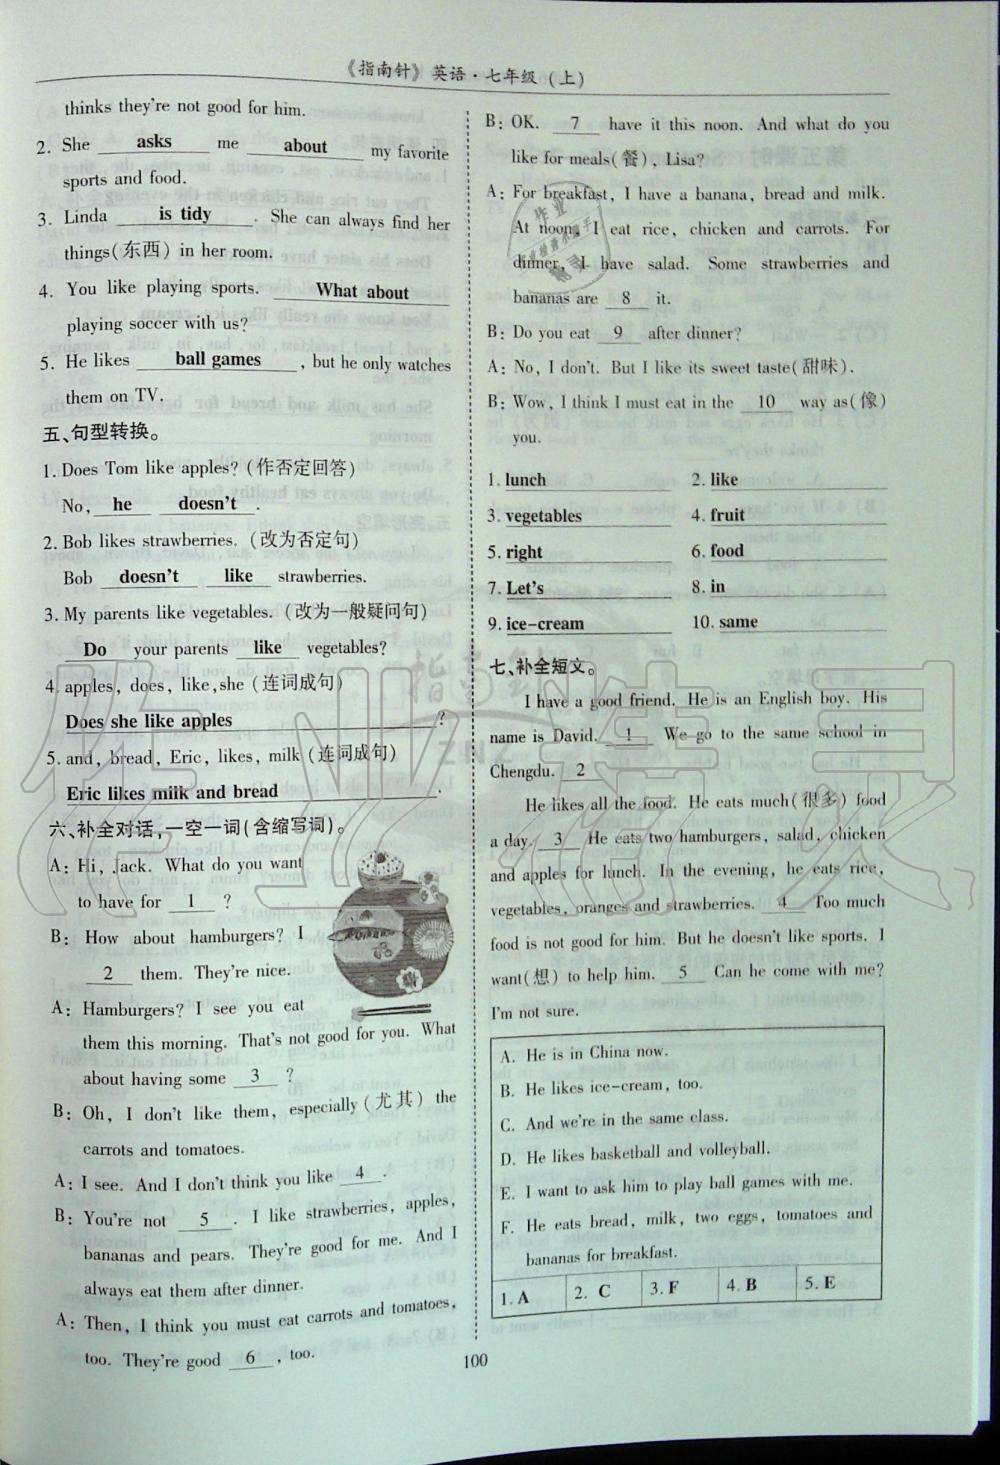 《指南针》英语·七年级(上)
thinks they're not good for him.
2. She asks me about my favorite
sports and food.
3. Linda is tidy . She can always find her
things(东西) in her room.
4. You like playing sports. What about
playing soccer with us?
5. He likes ball games , but he only watches
them on TV.
五、句型转换。
1. Does Tom like apples? (作否定回答)
No, he doesn't .
2. Bob likes strawberries. (改为否定句)
Bob doesn't like strawberries.
3. My parents like vegetables. (改为一般疑问句)
Do your parents like vegetables?
4. apples, does, like, she (连词成句)
Does she like apples ?
5. and, bread, Eric, likes, milk (连词成句)
Eric likes milk and bread .
六、补全对话,一空一词(含缩写词)。
A: Hi, Jack. What do you want
to have for 1 ?
B: How about hamburgers? I
2 them. They're nice.
A: Hamburgers? I see you eat
them this morning. That's not good for you. What
about having some 3 ?
B: Oh, I don't like them, especially(尤其) the
carrots and tomatoes.
A: I see. And I don't think you like 4 .
B: You're not 5 . I like strawberries, apples,
bananas and pears. They're good for me. And I
always eat them after dinner.
A: Then, I think you must eat carrots and tomatoes,
too. They're good 6 , too.
B: OK. 7 have it this noon. And what do you
like for meals(餐), Lisa?
A: For breakfast, I have a banana, bread and milk.
At noon, I eat rice, chicken and carrots. For
dinner, I have salad. Some strawberries and
bananas are 8 it.
B: Do you eat 9 after dinner?
A: No, I don't. But I like its sweet taste(甜味).
B: Wow, I think I must eat in the 10 way as(像)
you.
1. lunch 2. like
3. vegetables 4. fruit
5. right 6. food
7. Let's 8. in
9. ice-cream 10. same
七、补全短文。
I have a good friend. He is an English boy. His
name is David. 1 We go to the same school in
Chengdu. 2
He likes all the food. He eats much(很多) food
a day. 3 He eats two hamburgers, salad, chicken
and apples for lunch. In the evening, he eats rice,
vegetables, oranges and strawberries. 4 Too much
food is not good for him. But he doesn't like sports. I
want(想) to help him. 5 Can he come with me?
I'm not sure.
A. He is in China now.
B. He likes ice-cream, too.
C. And we're in the same class.
D. He likes basketball and volleyball.
E. I want to ask him to play ball games with me.
F. He eats bread, milk, two eggs, tomatoes and
bananas for breakfast.
1. A 2. C 3. F 4. B 5. E
100